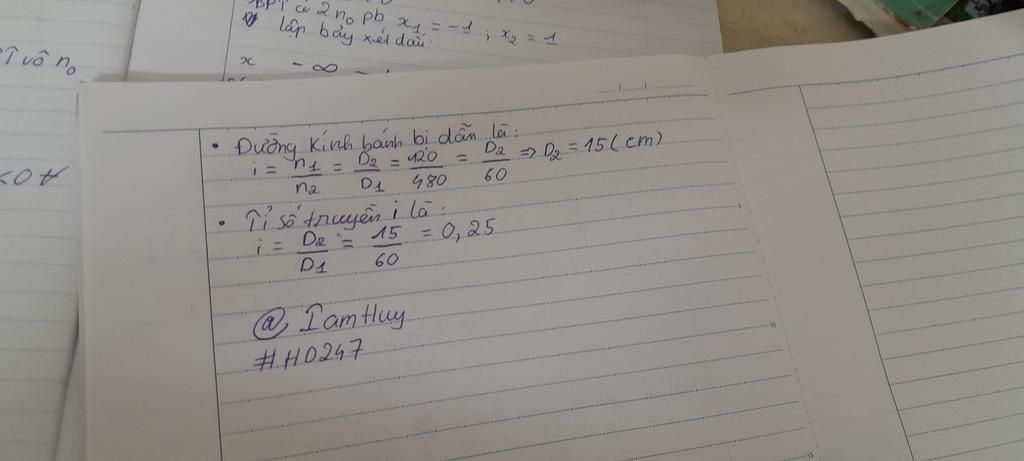 BPT có 2 n₀ pb x₁ = -1 ; x₂ = 1
lập bảy xét dấu:
x -∞ -1
T vô n₀
<0 ∀
• Đường kính bánh bị dẫn là:
i = n₁/n₂ = D₂/D₁ = 120/480 = D₂/60 => D₂ = 15 (cm)
• Tỉ số truyền i là:
i = D₂/D₁ = 15/60 = 0,25
@ IamHuy
#HD247
5
10
15